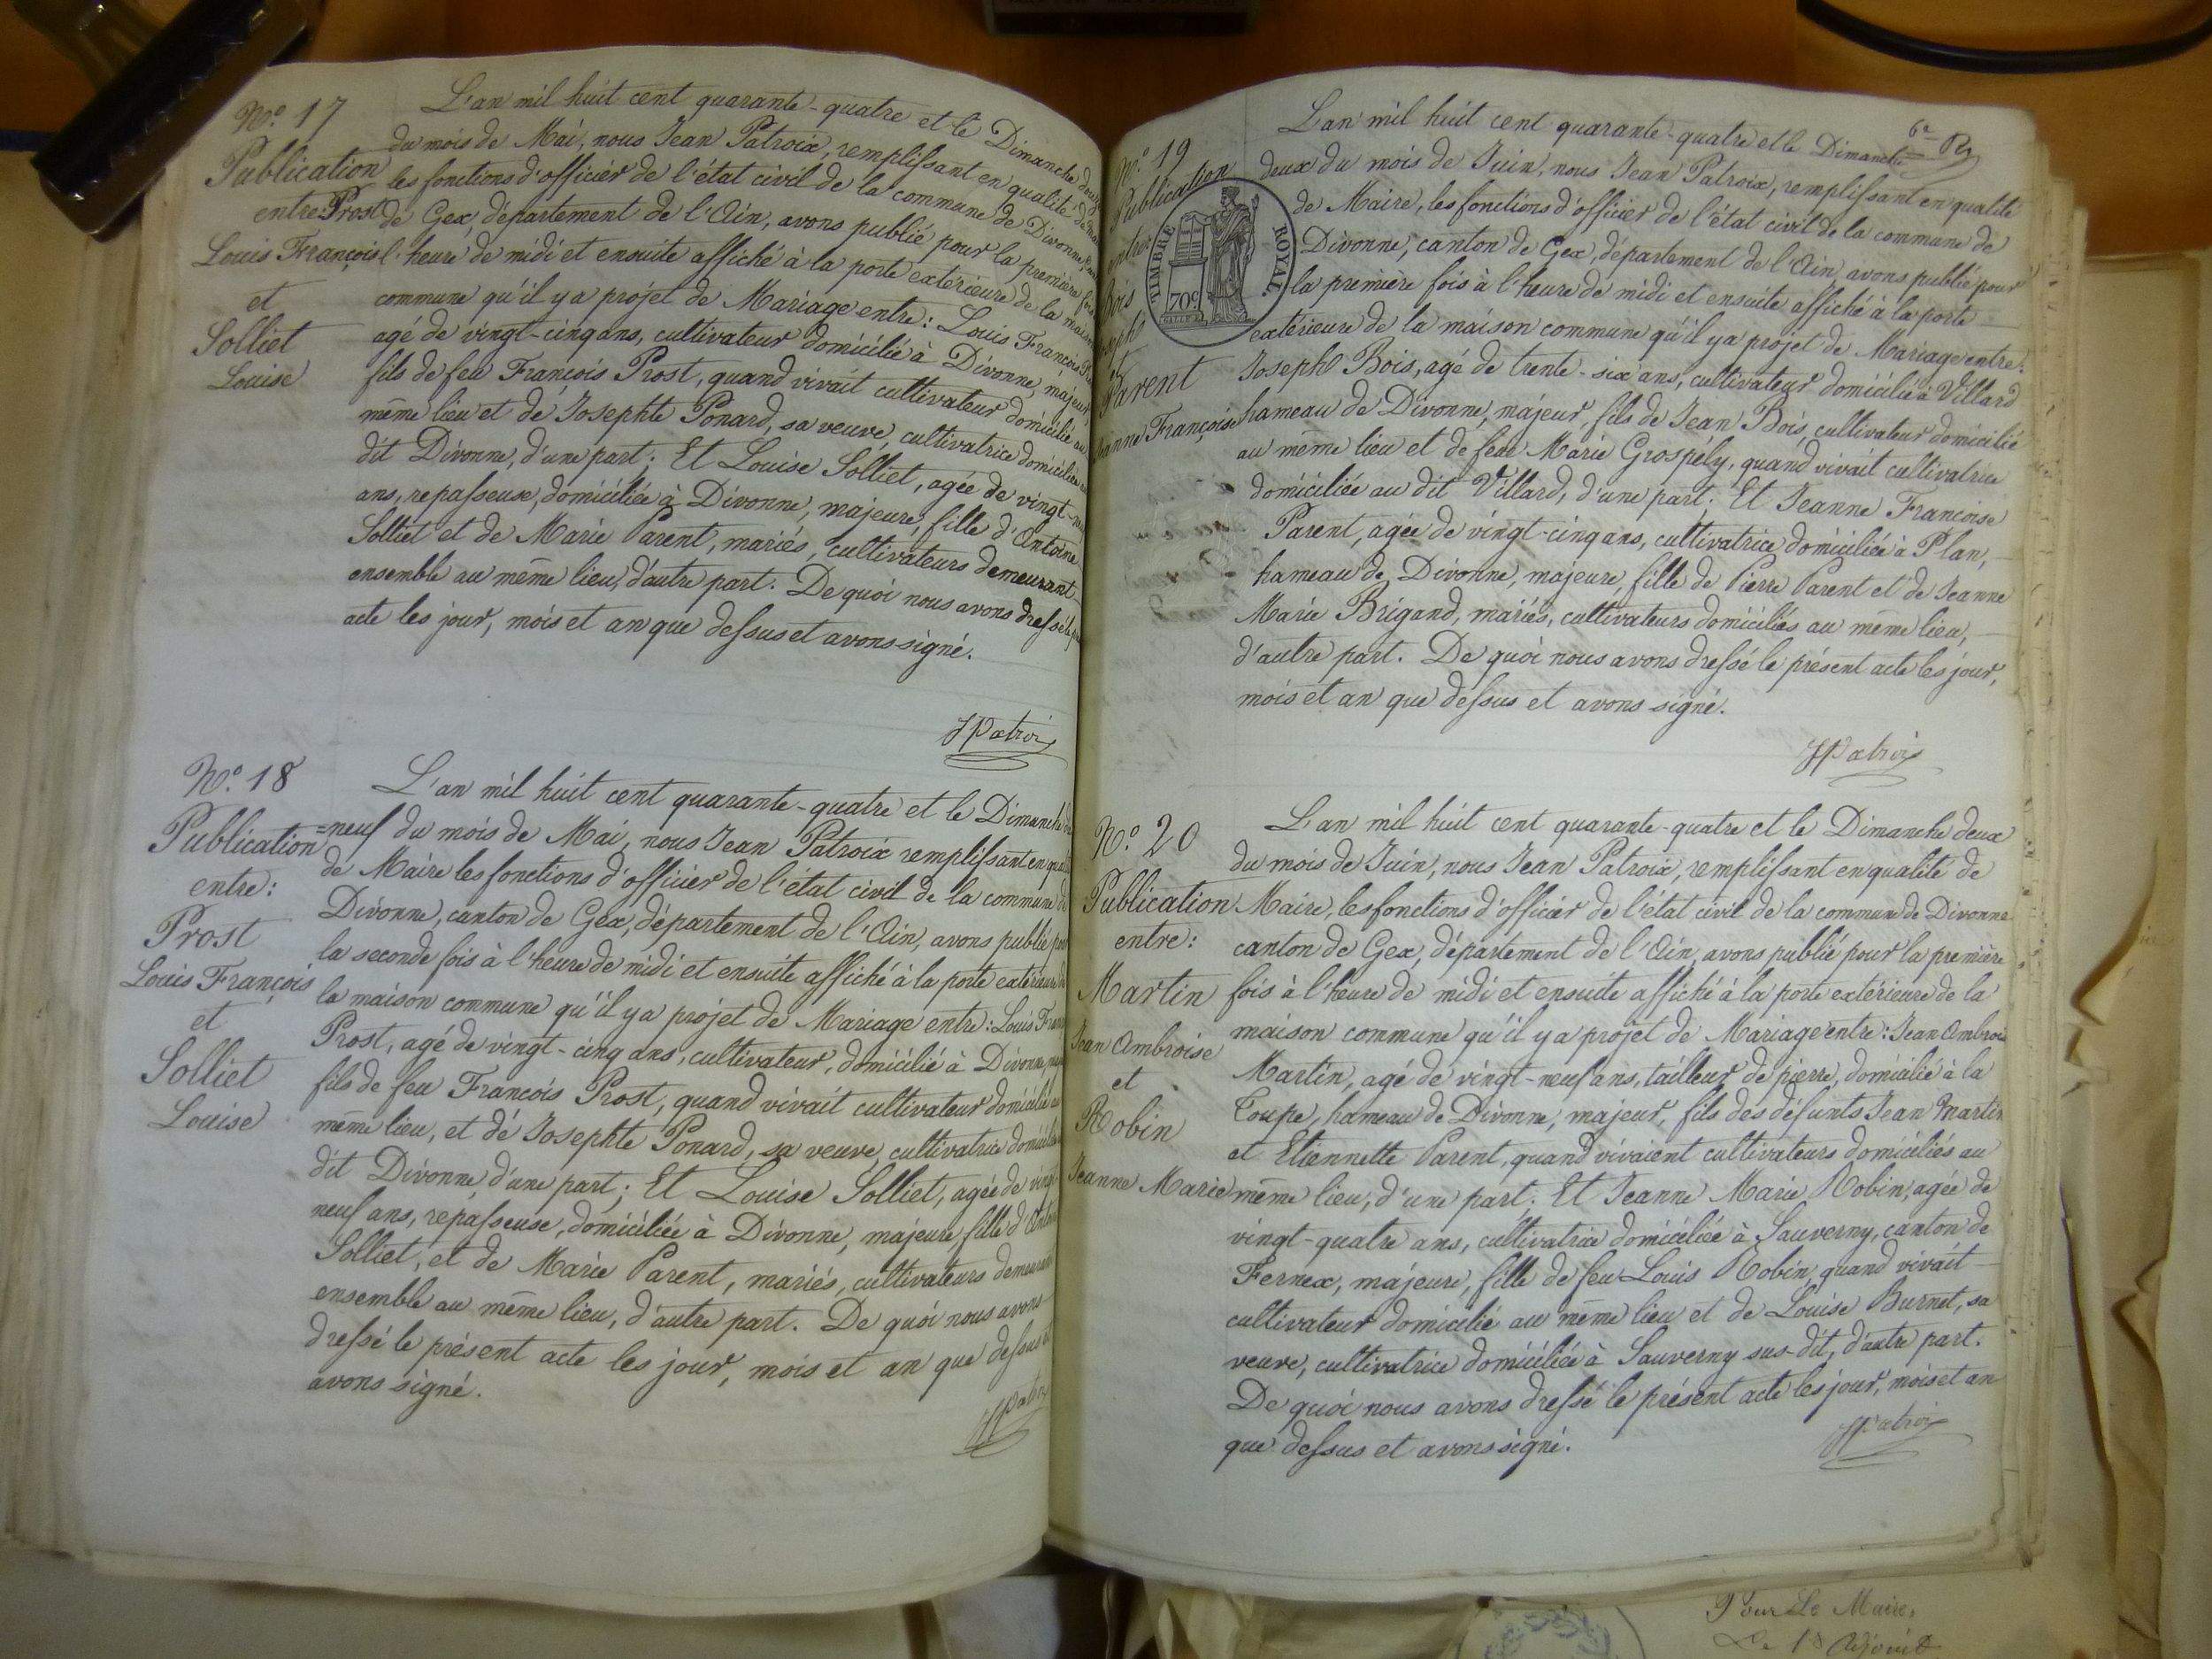 N.o 17
Publication
entre: Prost
Louis François
et
Solliet
Louise
L'an mil huit cent quarante-quatre et le Dimanche douze
du mois de Mai, nous Jean Patroix, remplissant en qualité de
les fonctions d'officier de l'état civil de la commune de Divonne,
de Gex, département de l'Ain, avons publié pour la première fois
l'heure de midi et ensuite affiché à la porte extérieure de la maison
commune qu'il y a projet de Mariage entre: Louis François
agé de vingt-cinq ans, cultivateur domicilié à Divonne, majeur,
fils de feu François Prost, quand vivait cultivateur domicilié au
même lieu et de Josephte Ponard, sa veuve, cultivatrice domiciliée
dit Divonne, d'une part; Et Louise Solliet, agée de vingt-neuf
ans, repasseuse, domiciliée à Divonne, majeure, fille d'Antoine
Solliet et de Marie Parent, mariés, cultivateurs demeurant
ensemble au même lieu, d'autre part. De quoi nous avons dressé le
acte les jour, mois et an que dessus et avons signé.
JPatroix
N.o 18
Publication
entre:
Prost
Louis François
et
Solliet
Louise
L'an mil huit cent quarante-quatre et le Dimanche
=neuf du mois de Mai, nous Jean Patroix remplissant en qualité
de Maire les fonctions d'officier de l'état civil de la commune de
Divonne, canton de Gex, département de l'Ain, avons publié pour
la seconde fois à l'heure de midi et ensuite affiché à la porte extérieure de
la maison commune qu'il y a projet de Mariage entre: Louis François
Prost, agé de vingt-cinq ans, cultivateur, domicilié à Divonne,
fils de feu François Prost, quand vivait cultivateur domicilié au
même lieu, et de Josephte Ponard, sa veuve, cultivatrice domiciliée
dit Divonne, d'une part; Et Louise Solliet, agée de vingt-
neuf ans, repasseuse, domiciliée à Divonne, majeure, fille d'Antoine
Solliet, et de Marie Parent, mariés, cultivateurs demeurant
ensemble au même lieu, d'autre part. De quoi nous avons
dressé le présent acte les jour, mois et an que dessus et
avons signé.
JPatroix
6e
N.o 19
Publication
entre
Bois
Joseph
et
Parent
Jeanne Françoise
TIMBRE ROYAL
70c
L'an mil huit cent quarante-quatre et le Dimanche
deux du mois de Juin, nous Jean Patroix, remplissant en qualité
de Maire, les fonctions d'officier de l'état civil de la commune de
Divonne, canton de Gex, département de l'Ain, avons publié pour
la première fois à l'heure de midi et ensuite affiché à la porte
extérieure de la maison commune qu'il y a projet de Mariage entre:
Joseph Bois, agé de trente-six ans, cultivateur domicilié à Villard
hameau de Divonne, majeur, fils de Jean Bois, cultivateur domicilié
au même lieu et de feue Marie Grospély, quand vivait cultivatrice
domiciliée au dit Villard, d'une part; Et Jeanne Françoise
Parent, agée de vingt-cinq ans, cultivatrice domiciliée à Plan,
hameau de Divonne, majeure, fille de Pierre Parent et de Jeanne
Marie Brigand, mariés, cultivateurs domiciliés au même lieu,
d'autre part. De quoi nous avons dressé le présent acte les jour,
mois et an que dessus et avons signé.
JPatroix
N.o 20
Publication
entre:
Martin
Jean Ambroise
et
Robin
Jeanne Marie
L'an mil huit cent quarante-quatre et le Dimanche deux
du mois de Juin, nous Jean Patroix, remplissant en qualité de
Maire, les fonctions d'officier de l'état civil de la commune de Divonne
canton de Gex, département de l'Ain, avons publié pour la première
fois à l'heure de midi et ensuite affiché à la porte extérieure de la
maison commune qu'il y a projet de Mariage entre: Jean Ambroise
Martin, agé de vingt-neuf ans, tailleur de pierre, domicilié à la
Coupe, hameau de Divonne, majeur, fils des défunts Jean Martin
et Etiennette Parent, quand vivaient cultivateurs domiciliés au
même lieu, d'une part; Et Jeanne Marie Robin, agée de
vingt-quatre ans, cultivatrice domiciliée à Sauverny, canton de
Fernex, majeure, fille de feu Louis Robin, quand vivait
cultivateur domicilié au même lieu et de Louise Burnet, sa
veuve, cultivatrice domiciliée à Sauverny sus-dit, d'autre part.
De quoi nous avons dressé le présent acte les jour, mois et an
que dessus et avons signé.
JPatroix
Pour Le Maire,